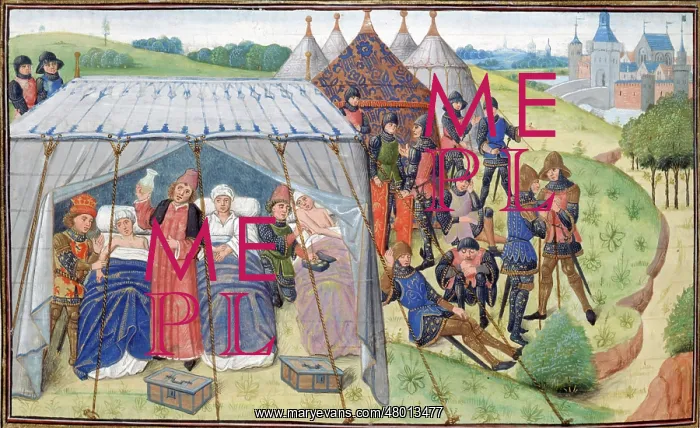 ME
PL
ME
PL
www.maryevans.com/48013477